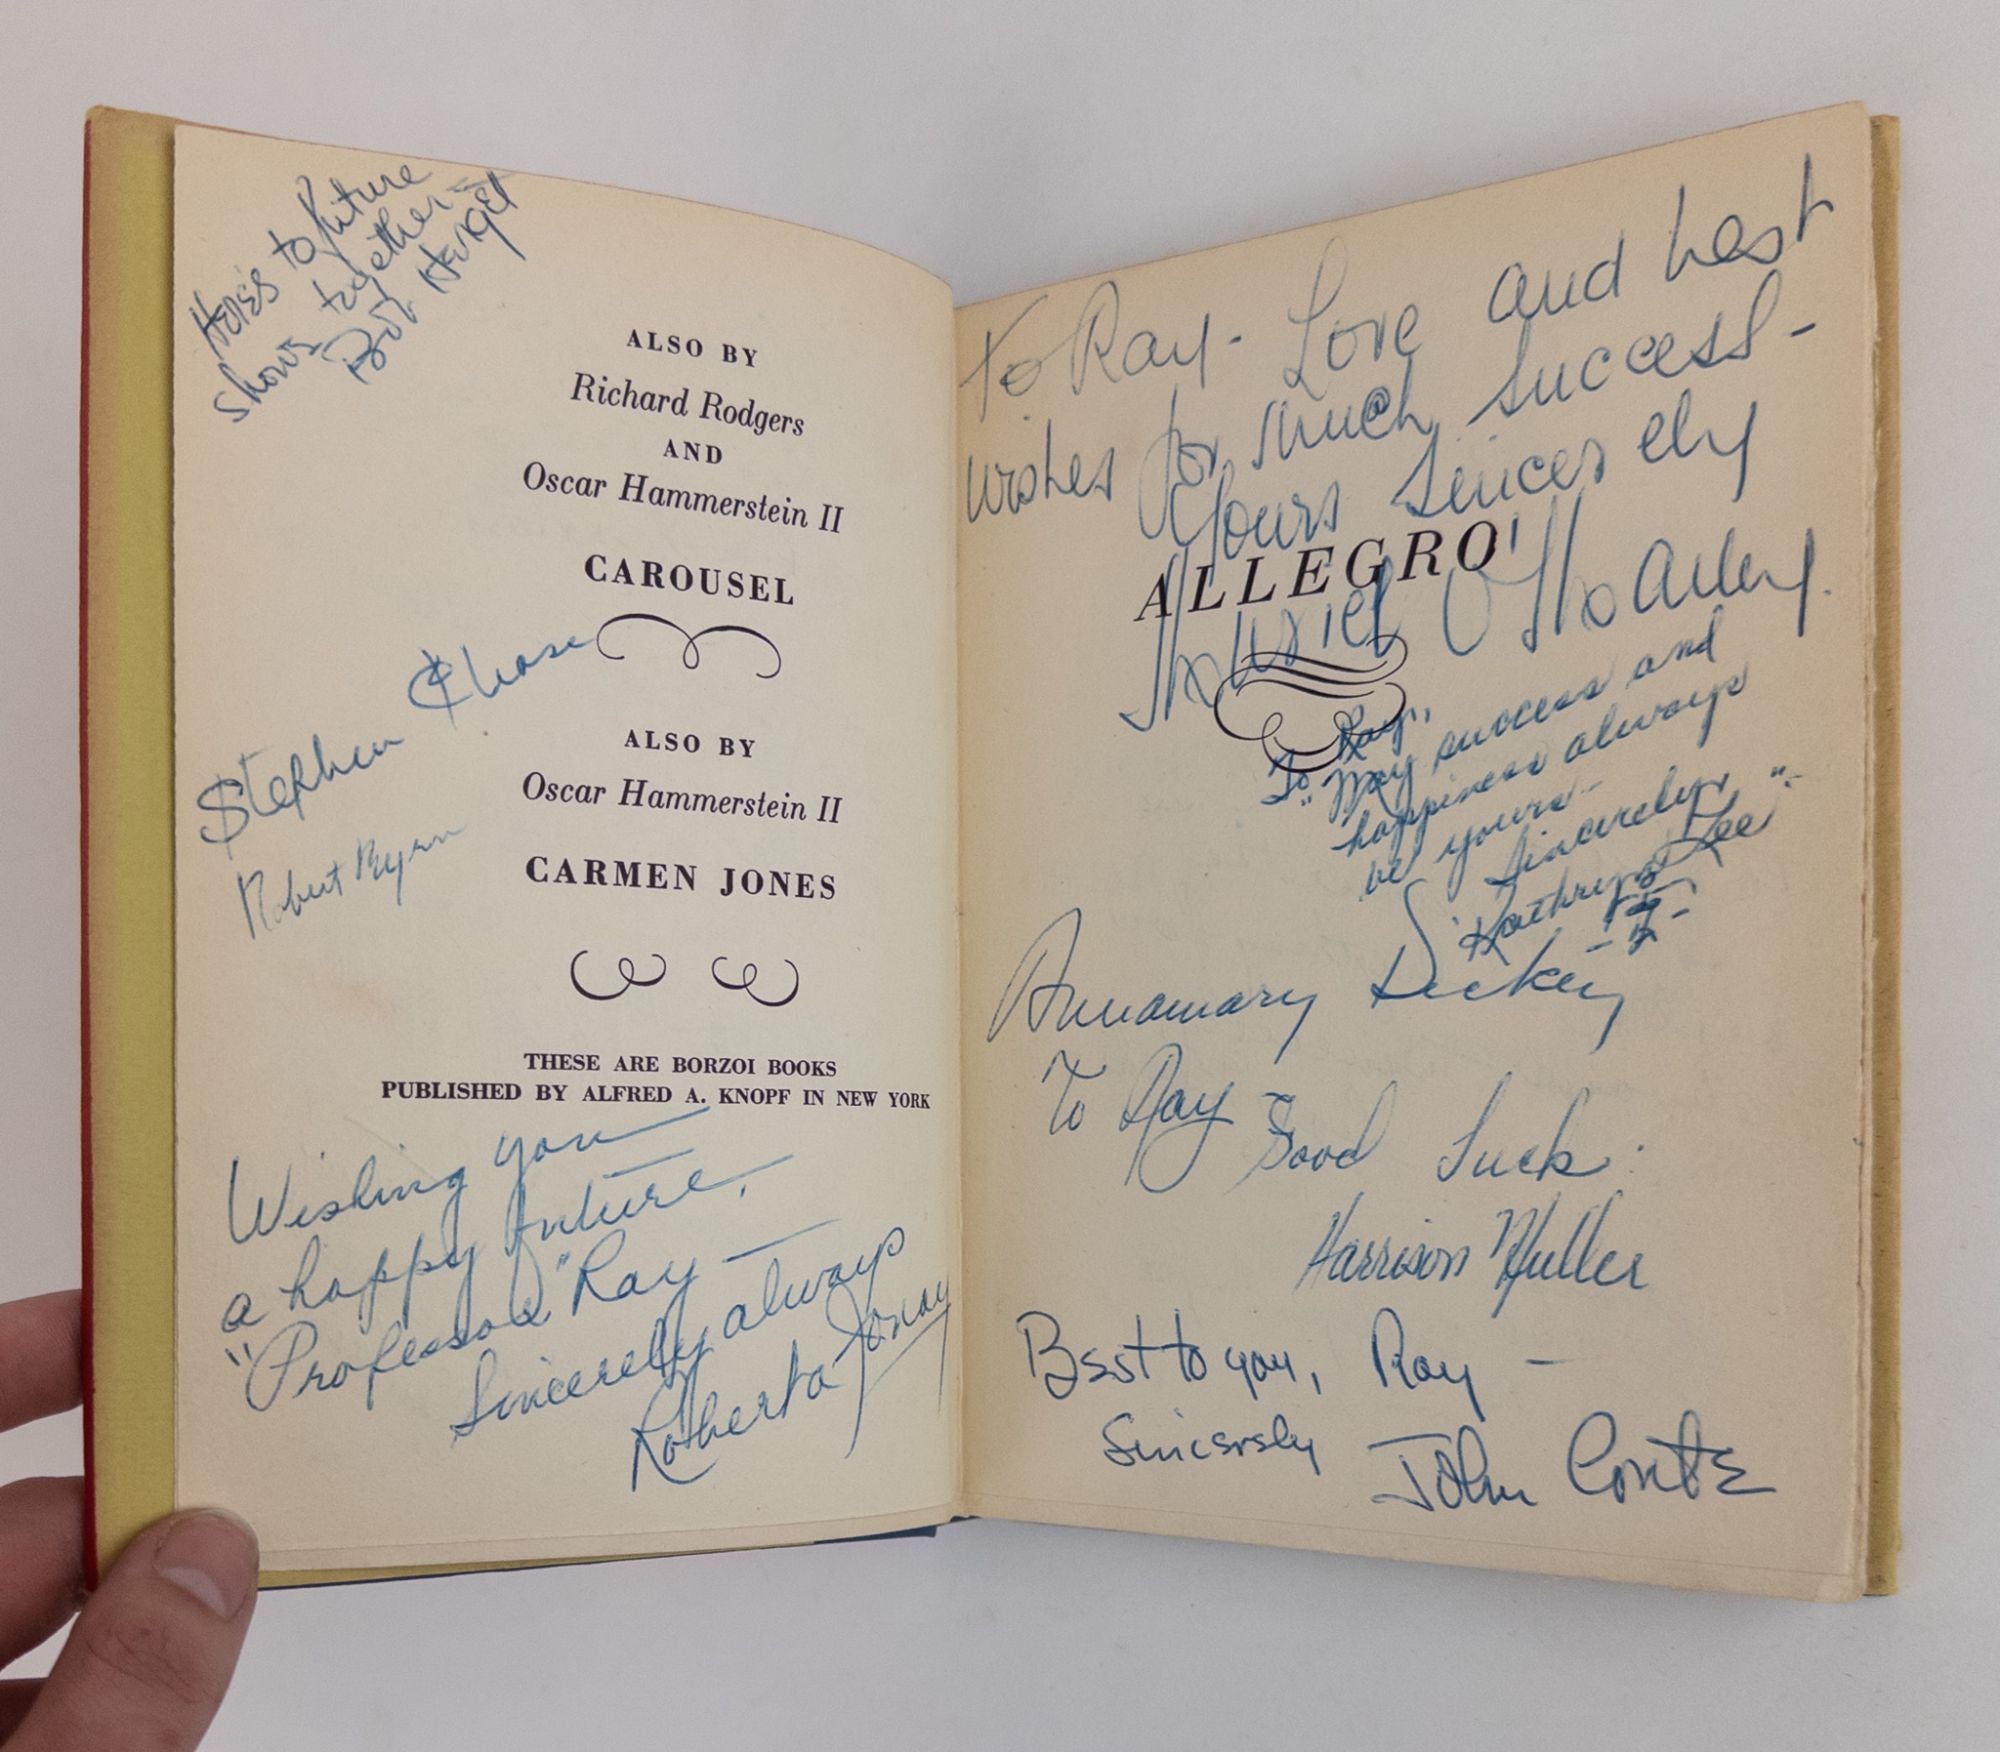 Here's to future
shows together -
Bob Herget
ALSO BY
Richard Rodgers
AND
Oscar Hammerstein II
CAROUSEL
Stephen Chase
ALSO BY
Oscar Hammerstein II
Robert Byrn
CARMEN JONES
THESE ARE BORZOI BOOKS
PUBLISHED BY ALFRED A. KNOPF IN NEW YORK
Wishing you
a happy future,
"Professor" Ray -
Sincerely always
Roberta Jonay
To Ray - Love and best
wishes for much success -
Yours Sincerely
ALLEGRO
Muriel O'Malley.
To Ray,
"May success and
happiness always
be yours -
Sincerely,
Kathryn Lee".
Annamary Dickey
To Ray -
Good Luck.
Harrison Muller
Best to you, Ray -
Sincerely
John Conte